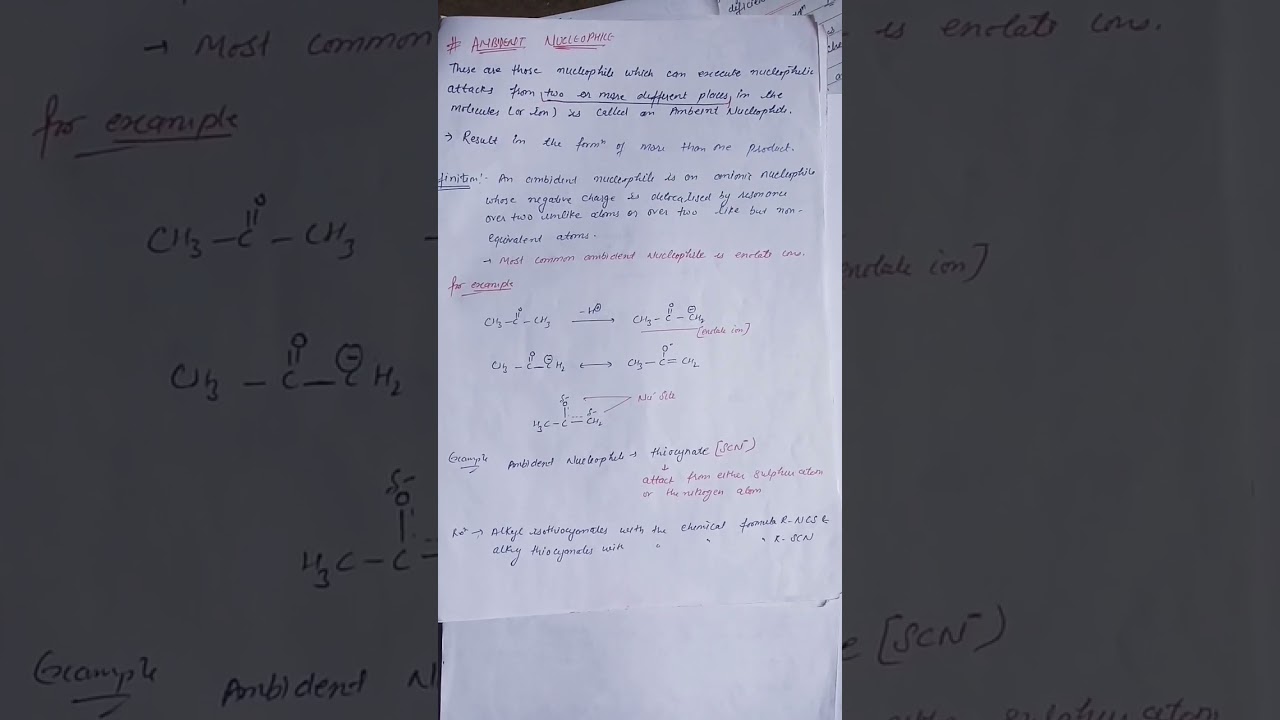 # AMBIDENT NUCLEOPHILE
These are those nucleophile which can execute nucleophilic
attacks from two or more different places in the
molecules (or Ion) is called an Ambient Nucleophile.
→ Result in the formⁿ of more than one product.
finition:- An ambident nucleophile is an anionic nucleophile
whose negative charge is delocalised by resonance
over two unlike atoms or over two like but non-
equivalent atoms.
→ Most common ambident Nucleophile is enolate ions.
for example
CH3-C-CH3 -H⊕ → CH3-C-CH2
O O ⊖
[enolate ion]
CH3-C-CH2 ↔ CH3-C=CH2
O ⊖ O-
δ- O δ- Nu- Site
H3C-C=CH2
Example Ambident Nucleophile → thiocynate [SCN-)
↓
attack from either sulphur atom
or the nitrogen atom
→ Alkyl isothiocynates with the chemical formula R-NCS &
alkyl thiocynates with " " " R-SCN
→ Most common
is enolate ions.
for example
CH3-C-CH3
O
enolate ion]
CH3-C-CH2
O ⊖
δ-
O
H3C-C
Example Ambident N
[SCN-)
sulphur atom